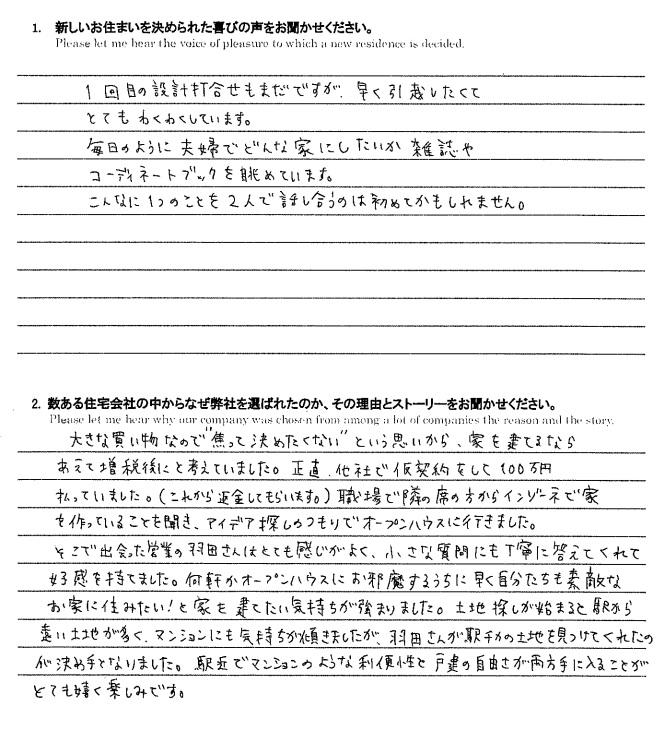 1. 新しいお住まいを決められた喜びの声をお聞かせください。
Please let me hear the voice of pleasure to which a new residence is decided.
1回目の設計打合せもまだですが、早く引越したくて
とてもわくわくしています。
毎日のように夫婦でどんな家にしたいか雑誌や
コーディネートブックを眺めています。
こんなに1つのことを2人で話し合うのは初めてかもしれません。
2. 数ある住宅会社の中からなぜ弊社を選ばれたのか、その理由とストーリーをお聞かせください。
Please let me hear why our company was chosen from among a lot of companies the reason and the story.
大きな買い物なので"焦って決めたくない"という思いから、家を建てるなら
あえて増税後にと考えていました。正直、他社で仮契約をして100万円
払っていました。(これから返金してもらいます。)職場で隣の席の方からインゾーネで家
を作っていることを聞き、アイデア探しのつもりでオープンハウスに行きました。
そこで出会った営業の羽田さんはとても感じがよく、小さな質問にも丁寧に答えてくれて
好感を持てました。何軒かオープンハウスにお邪魔するうちに早く自分たちも素敵な
お家に住みたい!と家を建てたい気持ちが強まりました。土地探しが始まると駅から
遠い土地が多く、マンションにも気持ちが傾きましたが、羽田さんが駅チカの土地を見つけてくれたの
が決め手となりました。駅近でマンションのような利便性と戸建の自由さが両方手に入ることが
とても嬉しく楽しみです。